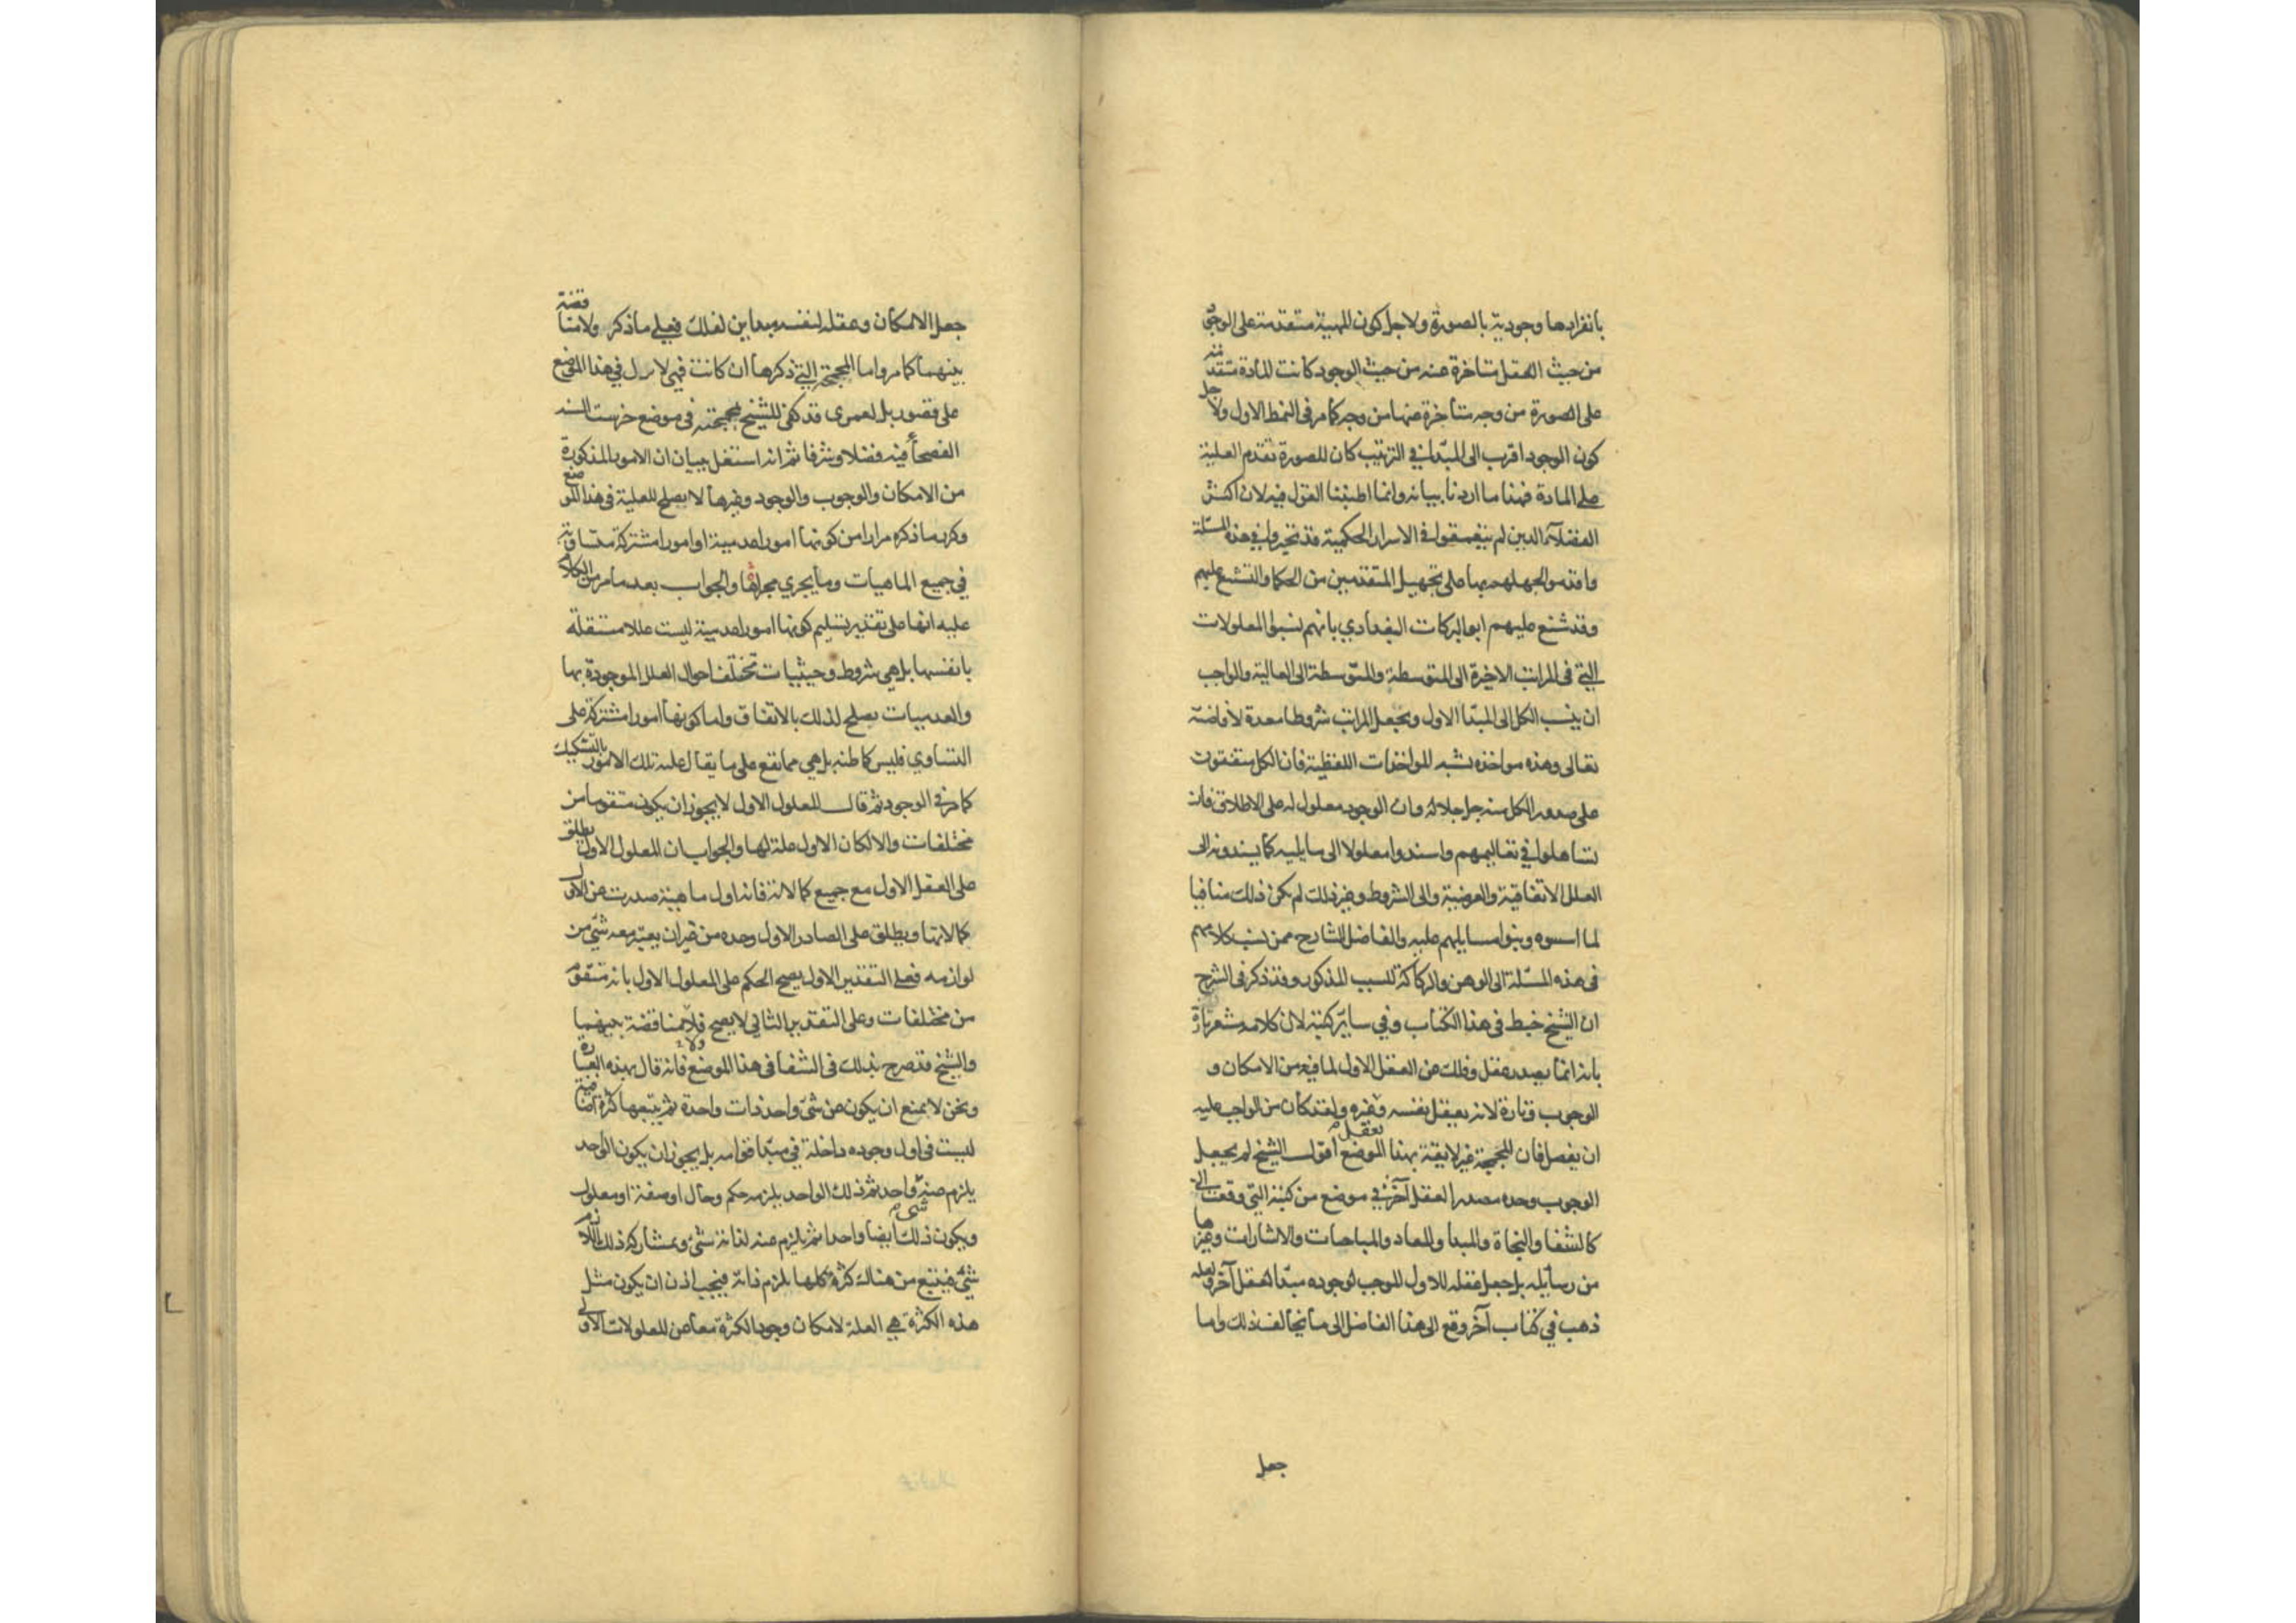 بانفرادها وجودية بالصورة ولاجل كون المهية متقدمة على الوجود
من حيث العقل متاخرة عنه من حيث الوجود كانت المادة متقدمة
على الصورة من وجه متاخرة عنها من وجه كما مر فى النمط الاول ولاجل
كون الوجود اقرب الى المبدا فى الترتيب كان للصورة تقدم العلية
على المادة فهذا ما اردنا بيانه وانما اطنبنا القول فيه لان اكثر
الفضلاء الذين لم يتعمقوا فى الاسرار الحكمية قد تحيروا فى هذه المسئلة
واقدموا لجهلهم بها على تجهيل المتقدمين من الحكما والتشنيع عليهم
وقد شنع عليهم ابو البركات البغدادي بانهم نسبوا المعلولات
التى فى المراتب الاخيرة الى المتوسطة والمتوسطة الى العالية والواجب
ان ينسب الكل الى المبدا الاول ويجعل المراتب شروطا معدة لافاضته
تعالى وهذه مواخذه تشبه المواخذات اللفظية فان الكل متفقون
على صدور الكل منه جل جلاله وان الوجود معلول له على الاطلاق فان
تساهلوا فى تعاليمهم واسندوا معلولا الى ما يليه كما يسندونه الى
العلل الاتفاقية والعرضية والى الشروط وغير ذلك لم يكن ذلك منافيا
لما اسسوه وبنوا مسايلهم عليه والفاضل الشارح ممن نسب كلامهم
فى هذه المسئلة الى الوهن والركاكة للسبب المذكور وقد ذكر فى الشرح
ان الشيخ خبط فى هذا الكتاب وفي ساير كتبه لان كلامه مشعر تارة
بانه انما يصدر عقل وفلك عن العقل الاول لما فيه من الامكان و
الوجوب وتارة لانه يعقل نفسه وغيره ولقد كان من الواجب عليه
ان يفصل فان المجمجة غير لايقة بهذا الموضع اقول الشيخ لم يجعل
الوجوب وحده مصدرا لعقل آخر فى موضع من كتبه التى وقعت الى
كالشفا والنجاة والمبدا والمعاد والمباحثات والاشارات وغيرها
من رسايله بل جعل عقله للاول الموجب لوجوده مبدا لعقل آخر ولعله
ذهب في كتاب آخر وقع الى هذا الفاضل الى ما يخالف ذلك واما
جعل
جعل الامكان وعقله لنفسه مبداين لفلك فعلى ما ذكر ولا مناقضة
بينهما كما مر واما المجمجة التى ذكرها ان كانت فهى لا تدل في هذا الموضع
على قصور بل لعمرى قد كفى للشيخ بمجمجته فى موضع خرست السنة
الفصحآ فيه فضلا وشرفا ثم انه اشتغل ببيان ان الامور المذكورة
من الامكان والوجوب والوجود وغيرها لا يصلح للعلية فى هذا الموضع
وكرر ما ذكره مرارا من كونها امورا عدمية او امورا مشتركة متساوية
في جميع الماهيات وما يجري مجراها والجواب بعد ما مر من الكلام
عليه انها على تقدير تسليم كونها امورا عدمية ليست عللا مستقلة
بانفسها بل هي شروط وحيثيات تختلف احوال العلل الموجودة بها
والعدميات يصلح لذلك بالاتفاق واما كونها امورا مشتركة على
التساوي فليس كما ظنه بل هي مما تقع على ما يقال عليه تلك الامور بالتشكيك
كما مر فى الوجود ثم قال المعلول الاول لا يجوز ان يكون متقوما من
مختلفات والا لكان الاول علة لها والجواب ان المعلول الاول يطلق
على العقل الاول مع جميع كمالاته فانه اول ماهية صدرت عن الاول
كمالاتها ويطلق على الصادر الاول وحده من غير ان يعتبر معه شىء من
لوازمه فعلى التقدير الاول يصح الحكم على المعلول الاول بانه متقوم
من مختلفات وعلى التقدير الثاني لا يصح ولا مناقضة بينهما
والشيخ قد صرح بذلك فى الشفا فى هذا الموضع فانه قال بهذه العبارة
ونحن لا نمنع ان يكون عن شىء واحد ذات واحدة ثم يتبعها كثرة اضافية
ليست فى اول وجوده داخلة في مبدا قوامه بل يجوز ان يكون الواحد
يلزم عنه واحد ثم ذلك الواحد يلزمه حكم وحال او صفة او معلول
ويكون ذلك ايضا واحدا ثم يلزم عنه لذاته شىء وبمشاركة ذلك اللازم
شىء فيتبع من هناك كثرة كلها يلزم ذاته فيجب اذن ان يكون مثل
هذه الكثرة هي العلة لامكان وجود الكثرة معا عن المعلولات الاولى